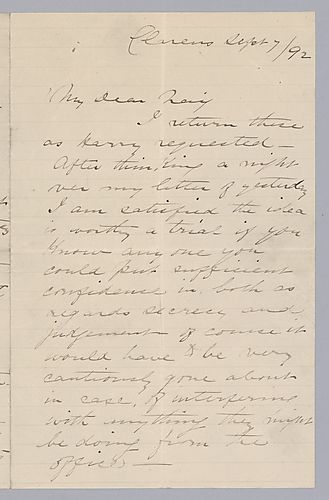 Clarens Sept 7/92
My Dear
I return these
as Harry requested —
After thinking a night
over my letter of yesterday
I am satisfied the idea
is worthy a trial if you
Know any one you
could put sufficient
confidence in both as
regards secrecy and
judgement of course it
would have to be very
cautiously gone about
in case of interfering
with anything they might
be doing from the
offices —